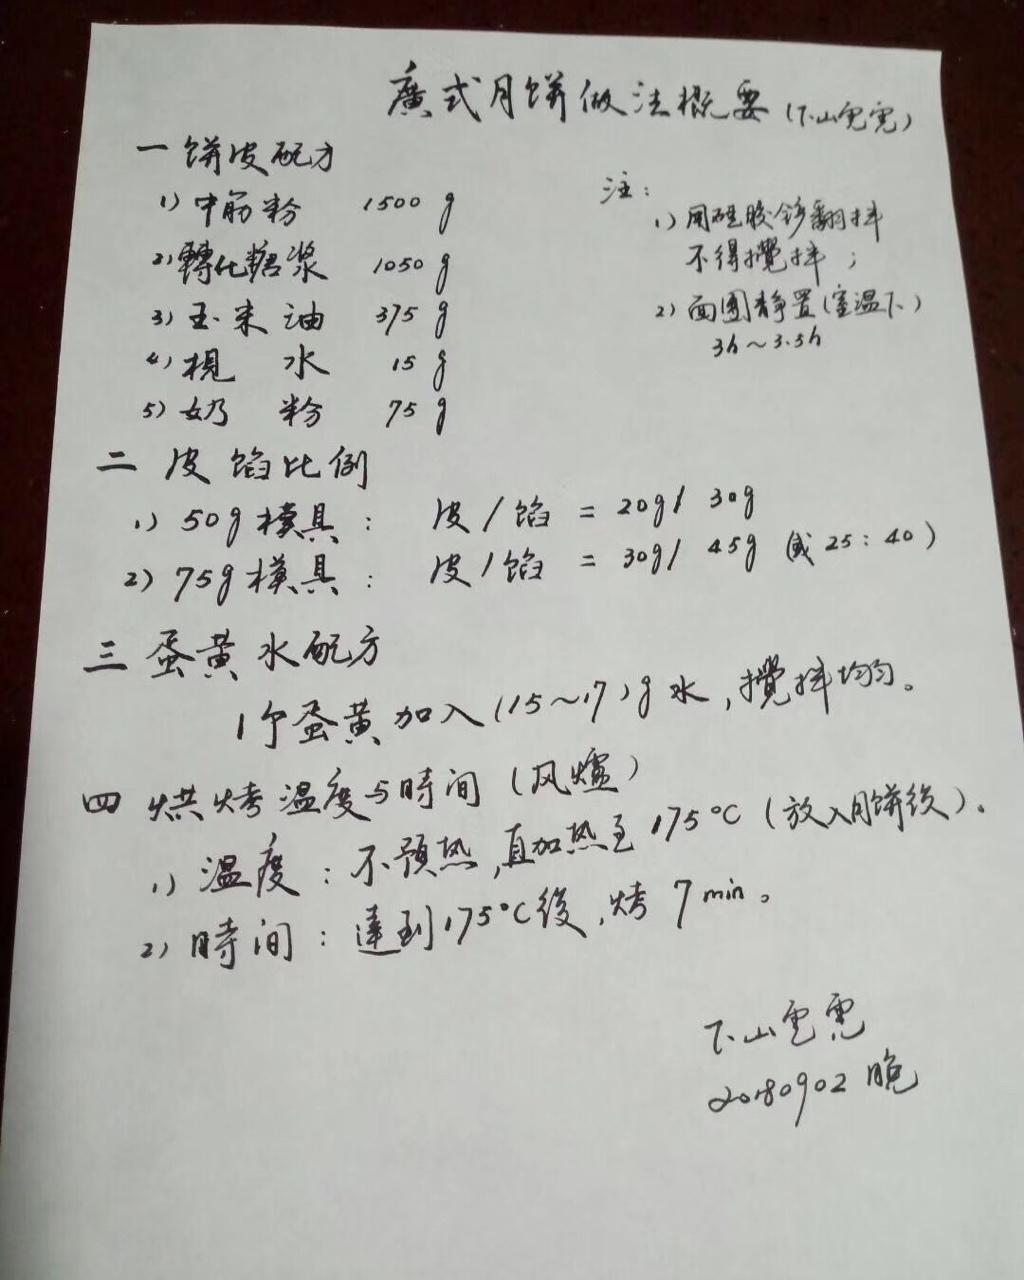 廣式月饼做法概要(下山)
一 饼皮配方
1) 中筋粉 1500 g
2) 轉化糖浆 1050 g
3) 玉米油 375 g
4) 枧 水 15 g
5) 奶 粉 75 g
注：
1) 用硅胶铲翻拌
不得攪拌；
2) 面團静置(室温下)
3h～3.5h
二 皮馅比例
1) 50g模具： 皮/馅 = 20g/ 30g
2) 75g模具： 皮/馅 = 30g/ 45g (或 25：40)
三 蛋黄水配方
1个蛋黄加入(15～17)g水，攪拌均匀。
四 烘烤温度与時间(风爐)
1) 温度：不预热，直加热至175°C(放入月饼後)。
2) 時间：達到175°C後，烤 7min。
下山
20180902 晚